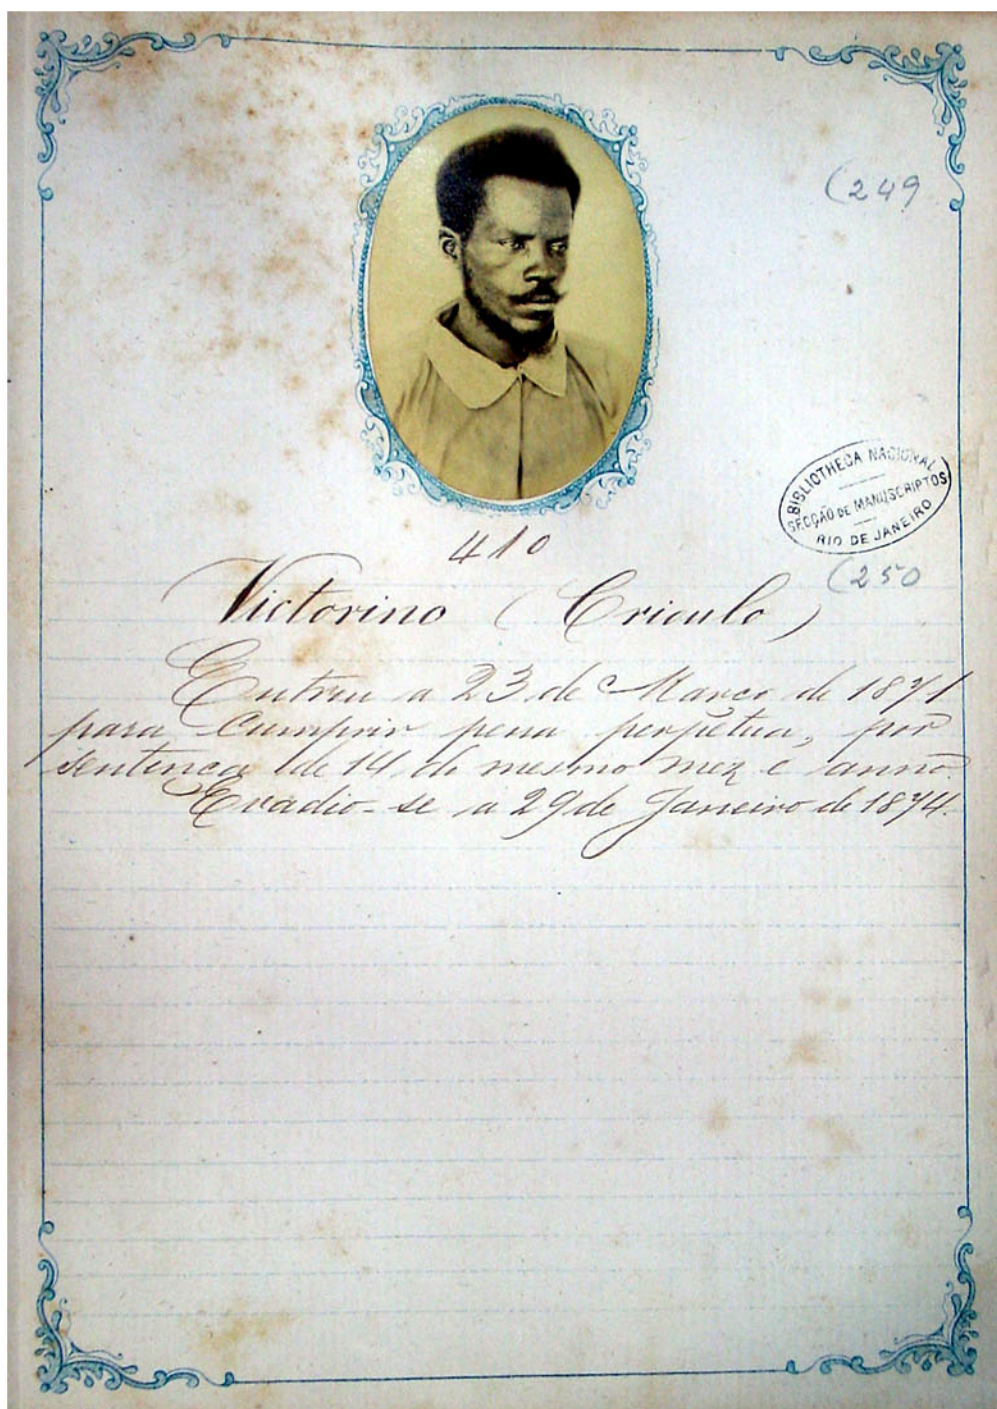 (249
BIBLIOTHECA NACIONAL
SECÇÃO DE MANUSCRIPTOS
RIO DE JANEIRO
410
(250
Victorino (Crioulo)
Entrou a 23 de Março de 1871
para cumprir pena perpetua, por
sentença de 14 do mesmo mez e anno.
Evadio-se a 29 de Janeiro de 1874.